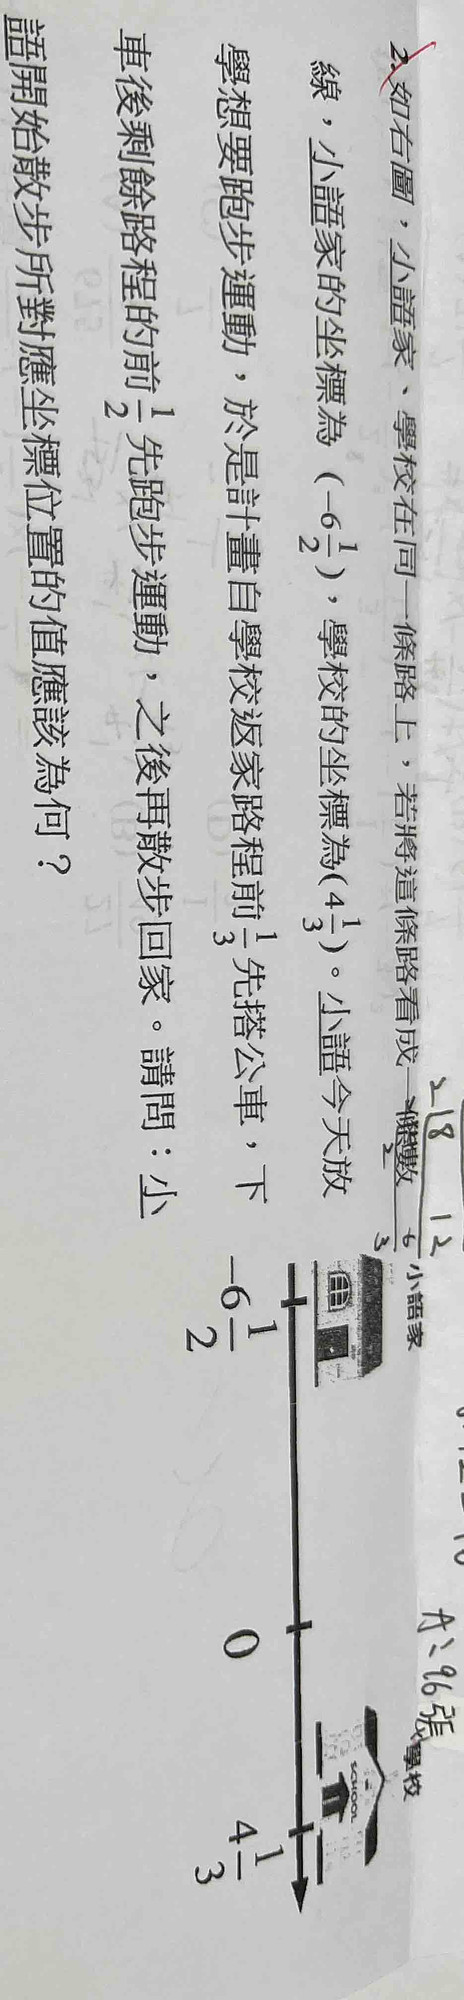 2. 如右圖，小語家、學校在同一條路上，若將這條路看成一條數
線，小語家的坐標為（-6 1/2），學校的坐標為(4 1/3)。小語今天放
學想要跑步運動，於是計畫自學校返家路程前 1/3 先搭公車，下
車後剩餘路程的前 1/2 先跑步運動，之後再散步回家。請問：小
語開始散步所對應坐標位置的值應該為何？
小語家
學校
SCHOOL
-6 1/2
0
4 1/3
2 18 12
2 6
3
A：96張